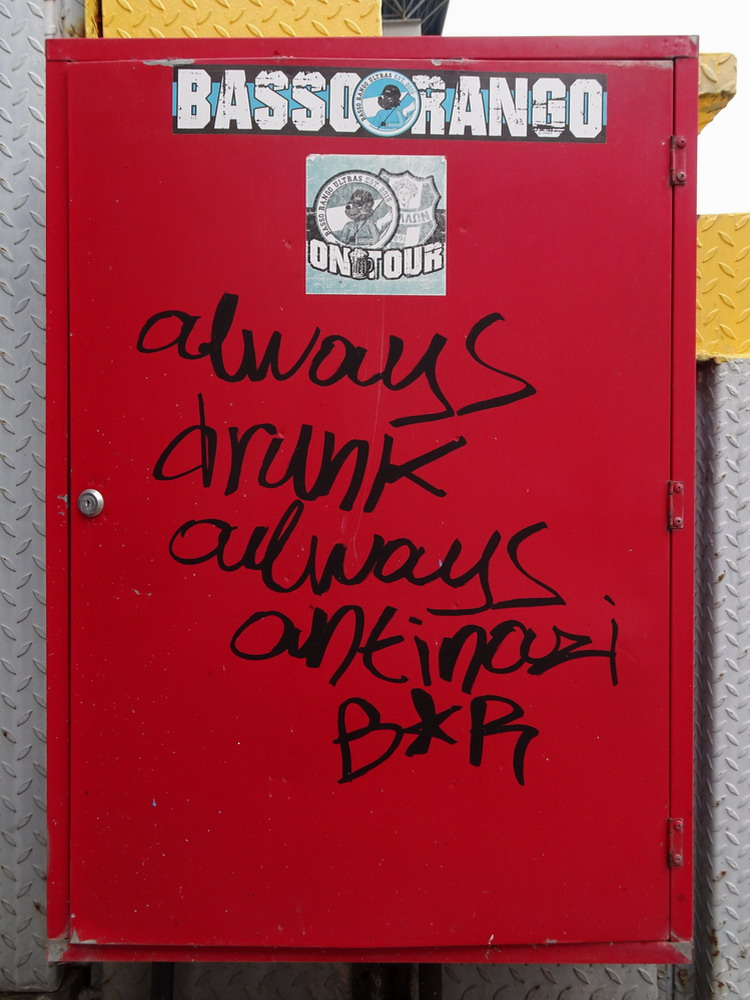 BASSO RANGO
BASSO RANGO ULTRAS EST 2015
BASSO RANGO ULTRAS EST 2015
ON TOUR
always
drunk
always
antinazi
B*R